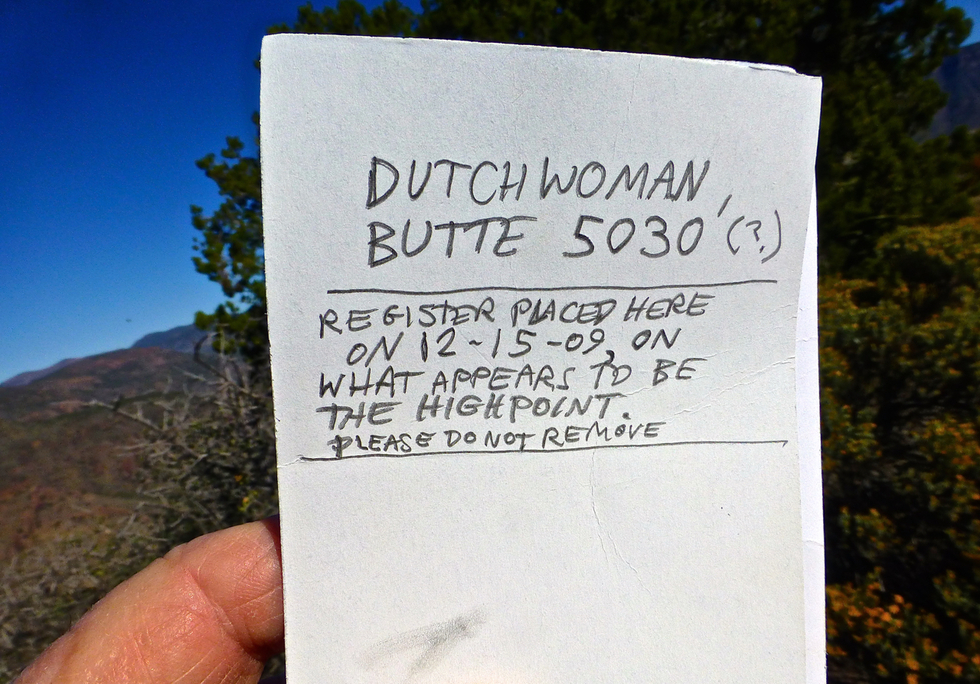 DUTCHWOMAN
BUTTE 5030' (?)
REGISTER PLACED HERE
ON 12-15-09, ON
WHAT APPEARS TO BE
THE HIGHPOINT.
PLEASE DO NOT REMOVE